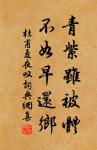 青紫雖被體
不如早還鄉
杜甫夏夜叹詞典網集